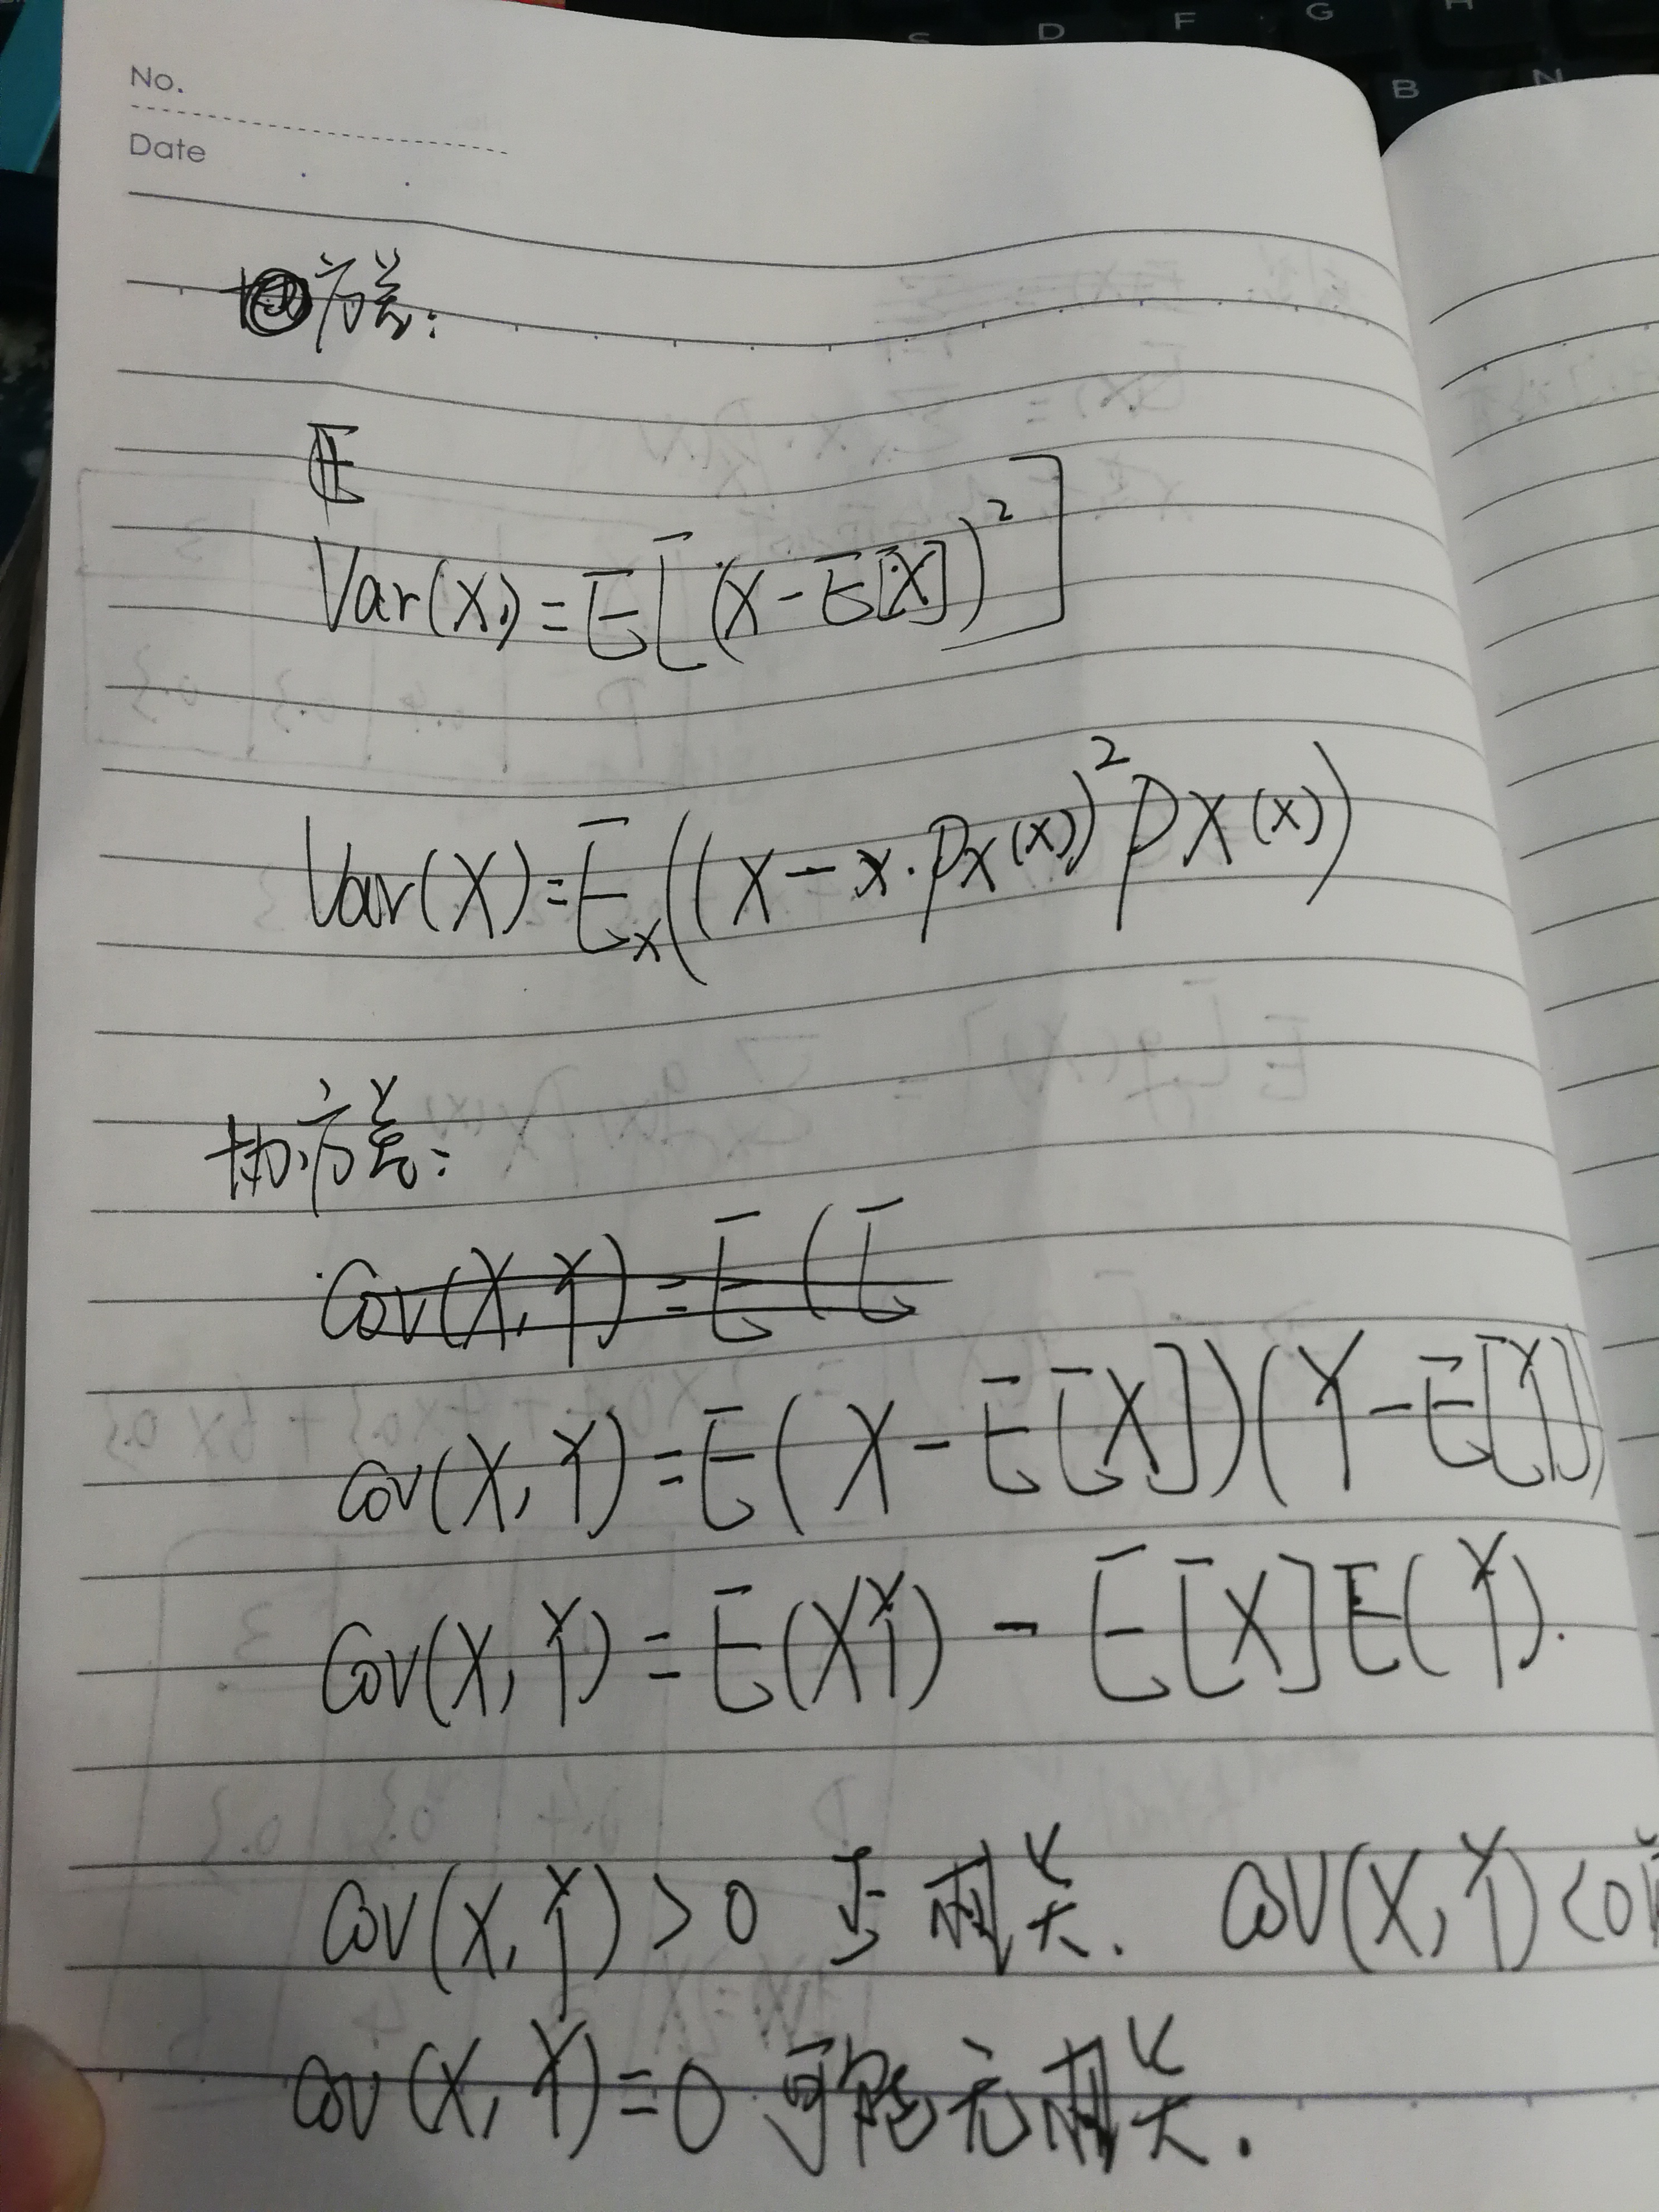 No.
Date
方差:
E
Var(X) = E[(X-E[X])²]
Var(X) = Eₓ((X-x.Px(x))²PX(x))
协方差:
Cov(X,Y) = E(E
Cov(X,Y) = E(X-E[X])(Y-E[Y])
Cov(X,Y) = E(XY) - E[X]E(Y).
Cov(X,Y) > 0 正相关. COV(X,Y) <0
Cov(X,Y) = 0 可能无相关.